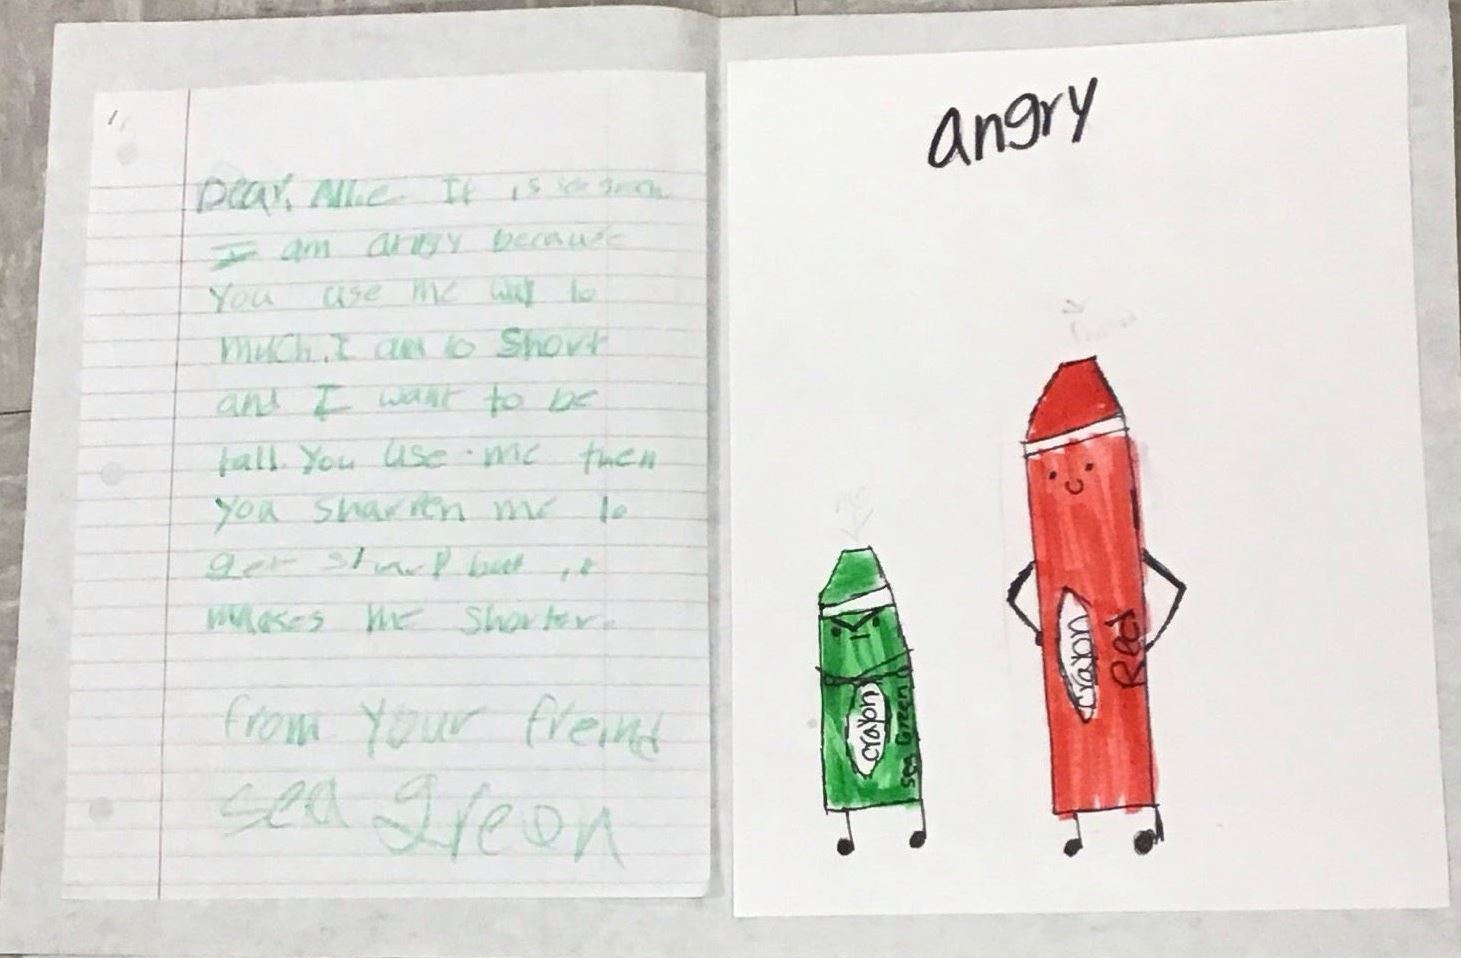 Dear, Allie It is
I am angry because
you use me way to
much. I am to short
and I want to be
tall. You use me then
you sharpen me to
get sharp but it
makes me shorter.
from your freind
sea green
angry
crayon
Sea Green
crayon
Red